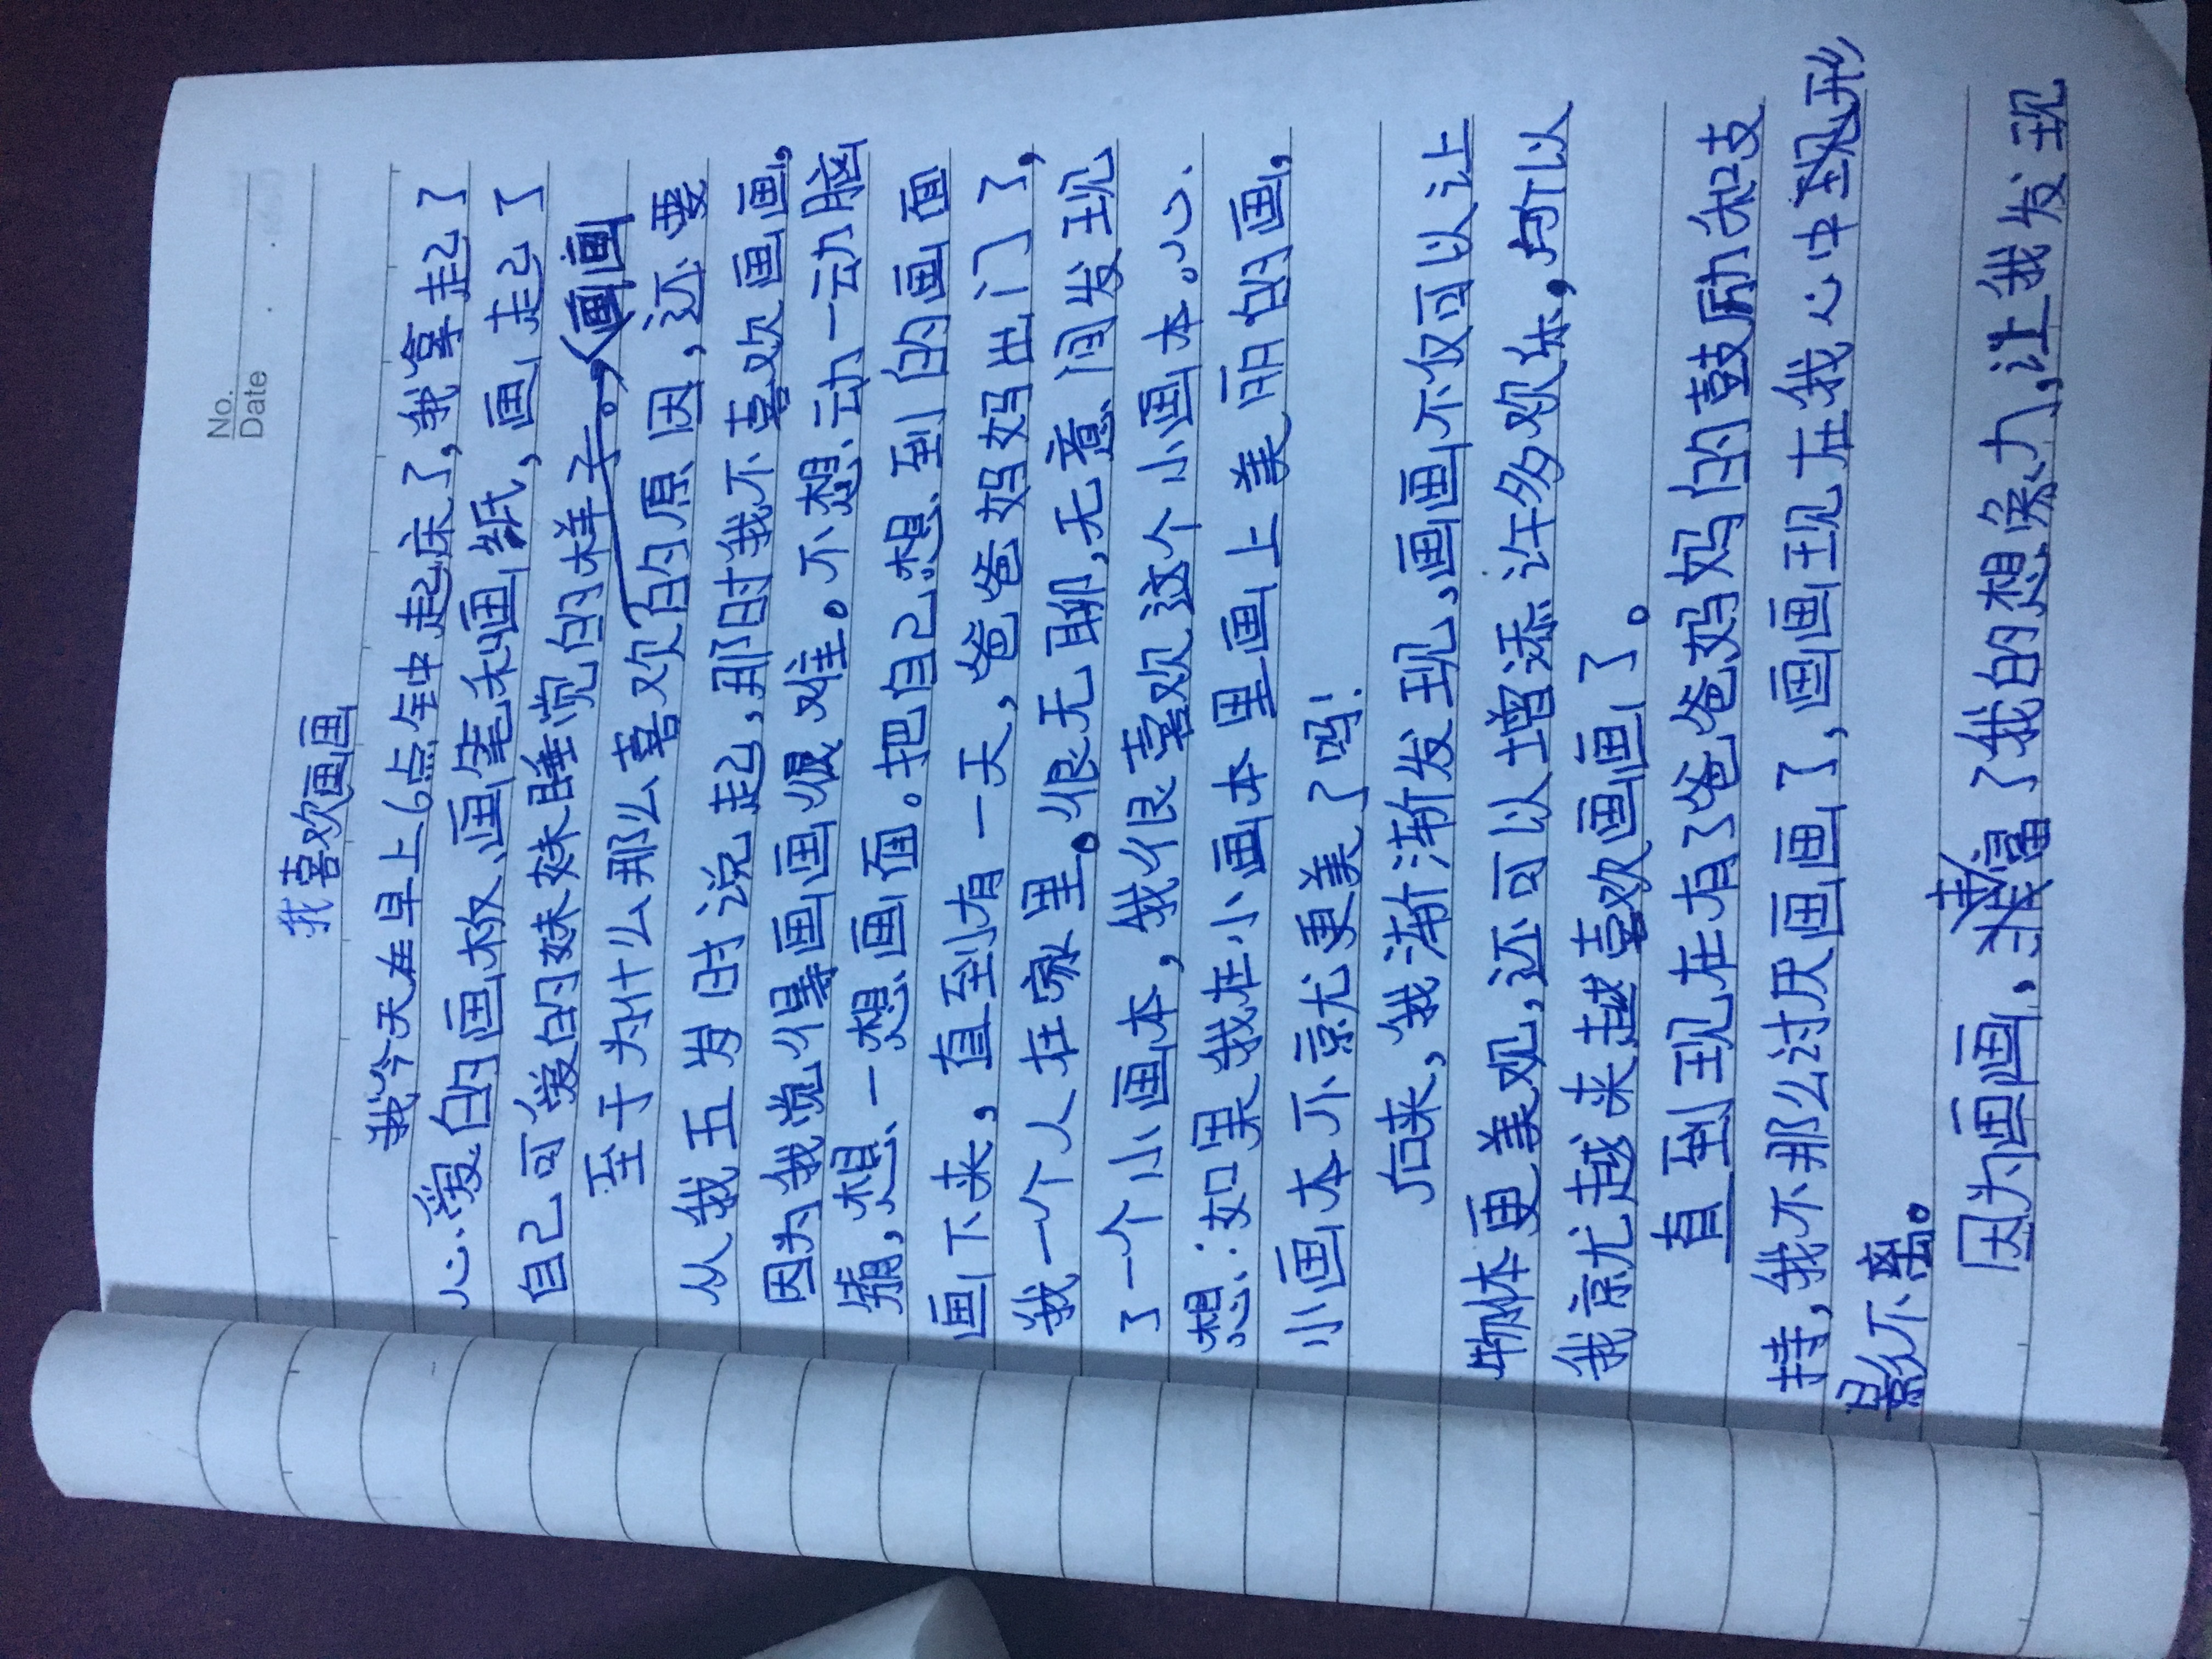 No.
Date
我喜欢画画
我今天在早上6点钟起床了,我拿起了
心爱的画板、画笔和画纸,画起了
自己可爱的妹妹睡觉的样子。
至于为什么那么喜欢画画的原因,还要
从我五岁时说起,那时我不喜欢画画,
因为我觉得画画很难。不想动一动脑
筋,想一想画面。把自己想到的画面
画下来,直到有一天,爸爸妈妈出门了,
我一个人在家里。很无聊,无意间发现
了一个小画本,我很喜欢这个小画本。心
想:如果我在小画本里画上美丽的画,
小画本不就更美了吗!
后来,我渐渐发现,画画不仅可以让
物体更美观,还可以增添许多欢乐,所以
我就越来越喜欢画画了。
直到现在有了爸爸妈妈的鼓励和支
持,我不那么讨厌画画了,画画现在我心中形
影不离。
因为画画,丰富了我的想象力,让我发现